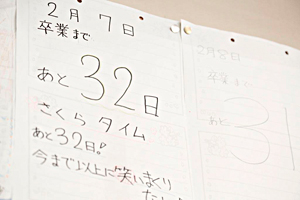 2月7日
卒業まで
あと32日
さくらタイム
あと32日!
今まで以上に笑いまくり
たい
2月8日
卒業まで
あと31